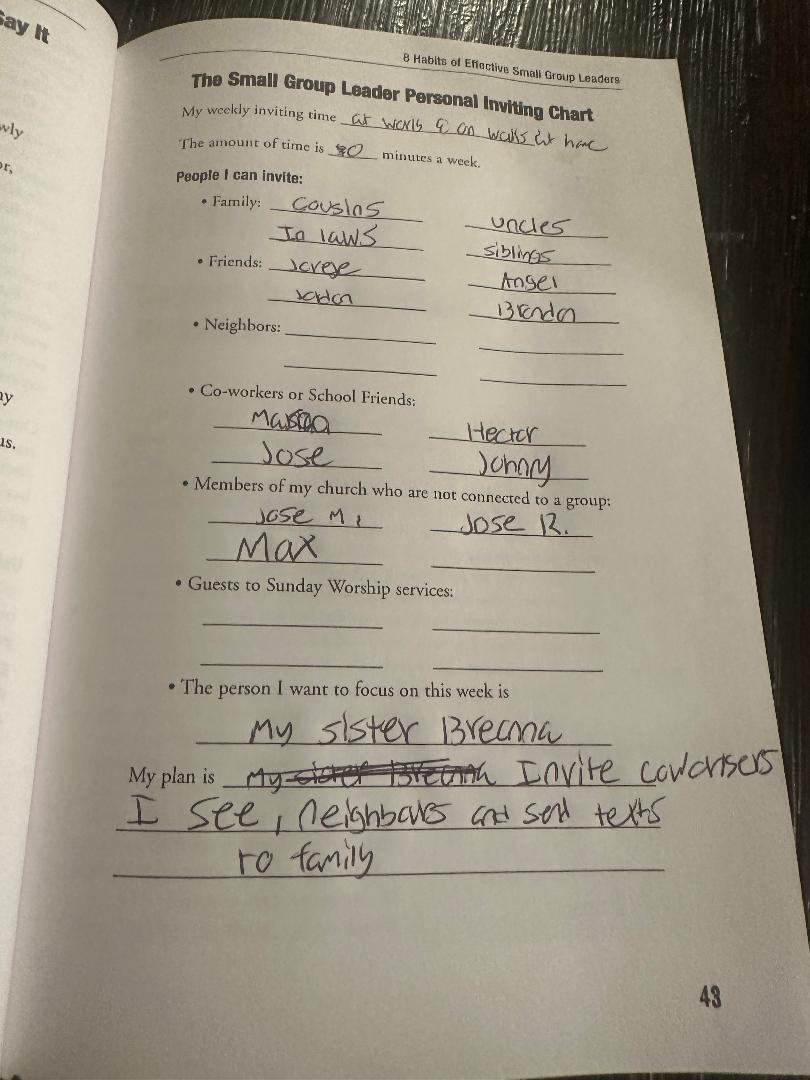 Say It
wly
or,
ay
us.
8 Habits of Effective Small Group Leaders
The Small Group Leader Personal Inviting Chart
My weekly inviting time at work & on walks at home
The amount of time is 80 minutes a week.
People I can invite:
• Family: Cousins uncles
In laws siblings
• Friends: Jorge Angel
Jordan Brendon
• Neighbors:
• Co-workers or School Friends:
Hector
Jose Johnny
• Members of my church who are not connected to a group:
Jose M. Jose R.
Max
• Guests to Sunday Worship services:
• The person I want to focus on this week is
My sister Breanna
My plan is My sister Breanna Invite coworkers
I see, neighbors and send texts
to family
43